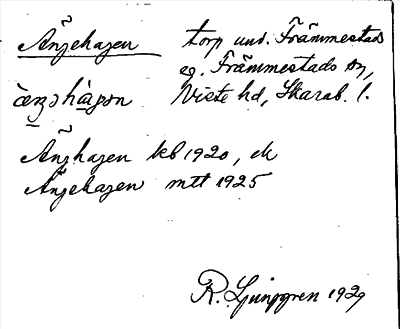 Änjehagen torp und. Främmestads
eg. Främmestads sn,
Viste hd, Skarab. l.
Änjhagen kb 1920, ek
Änjehagen mtt 1925
R. Ljunggren 1929